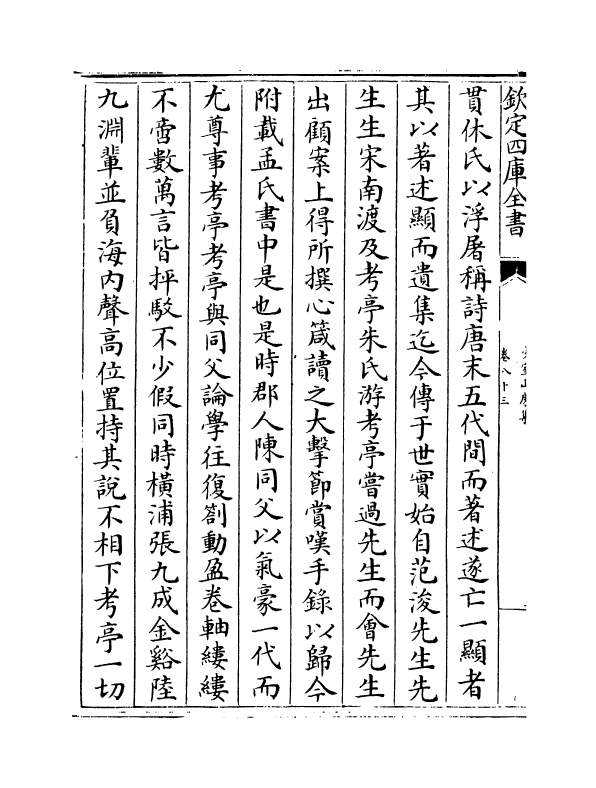 欽定四庫全書
卷八十三
貫休氏以浮屠稱詩唐末五代間而著述遂亡一顯者
其以著述顯而遺集迄今傳于世實始自范浚先生先
生生宋南渡及考亭朱氏游考亭嘗過先生而會先生
出顧案上得所撰心箴讀之大擊節賞嘆手錄以歸今
附載孟氏書中是也是時郡人陳同父以氣豪一代而
尤尊事考亭考亭與同父論學往復劄動盈卷軸縷縷
不啻數萬言皆抨駁不少假同時橫浦張九成金谿陸
九淵輩並負海內聲高位置持其說不相下考亭一切